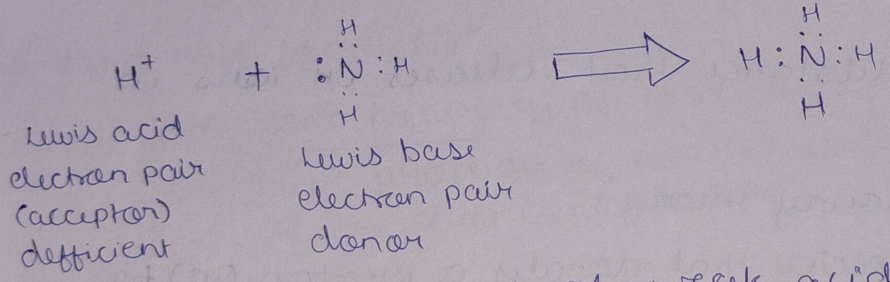 H
H
H⁺ + :N:H ⇒ H:N:H
H
H
Lewis acid
electron pair
(acceptor)
defficient
Lewis base
electron pair
donor
weak acid